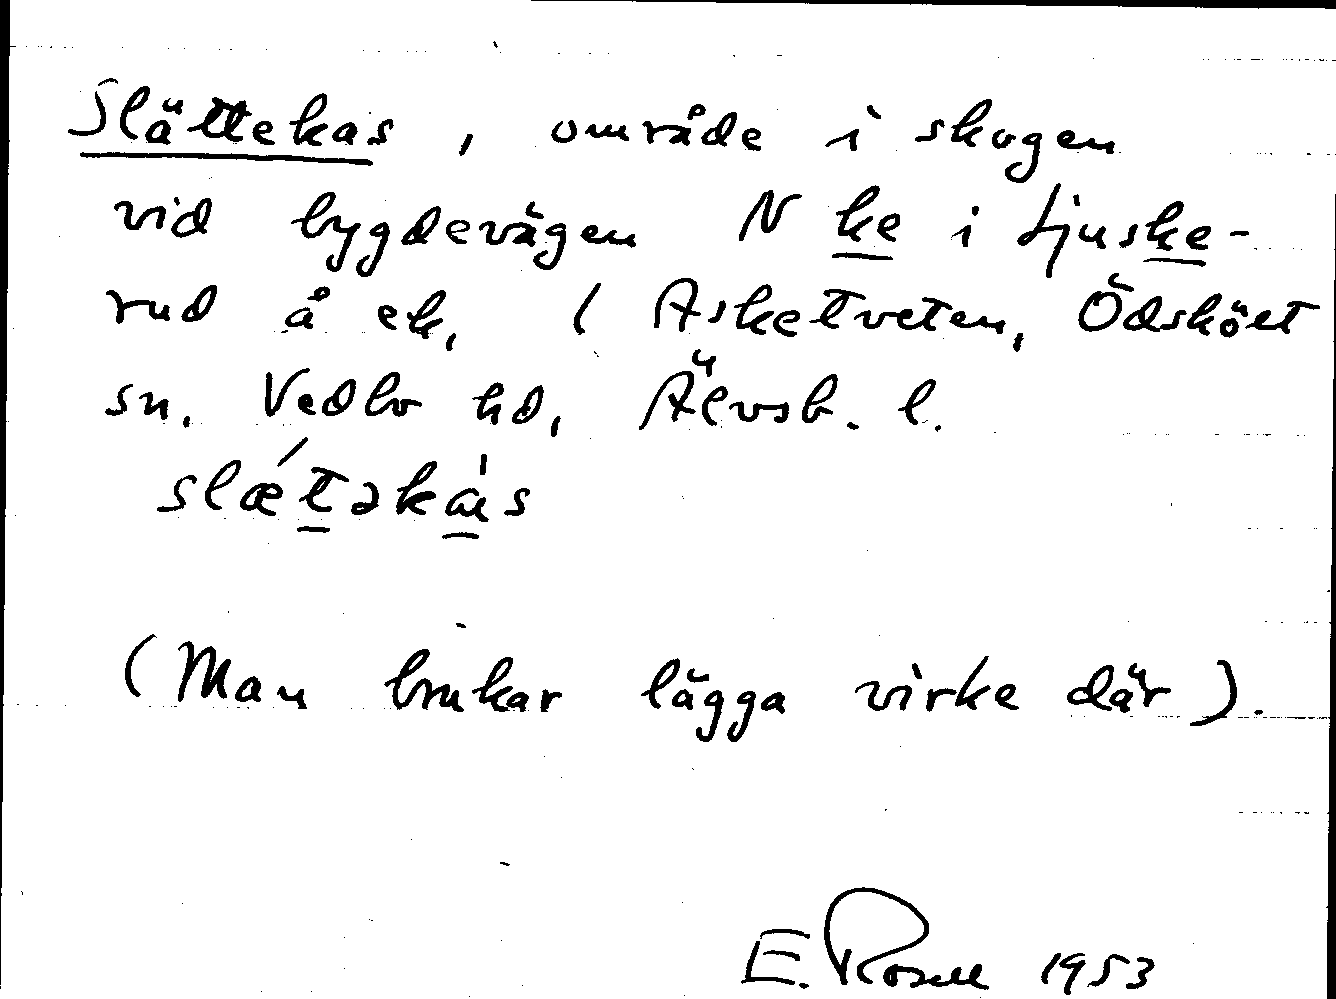 Slättekas, område i skogen
vid bygdevägen N ke i Ljuske-
rud å ek, ( Asketveten, Ödsköet
sn. Vedbo hd, Älvsb. l.
slǽtəkàs
(Man brukar lägga virke där).
E. Rosell 1953